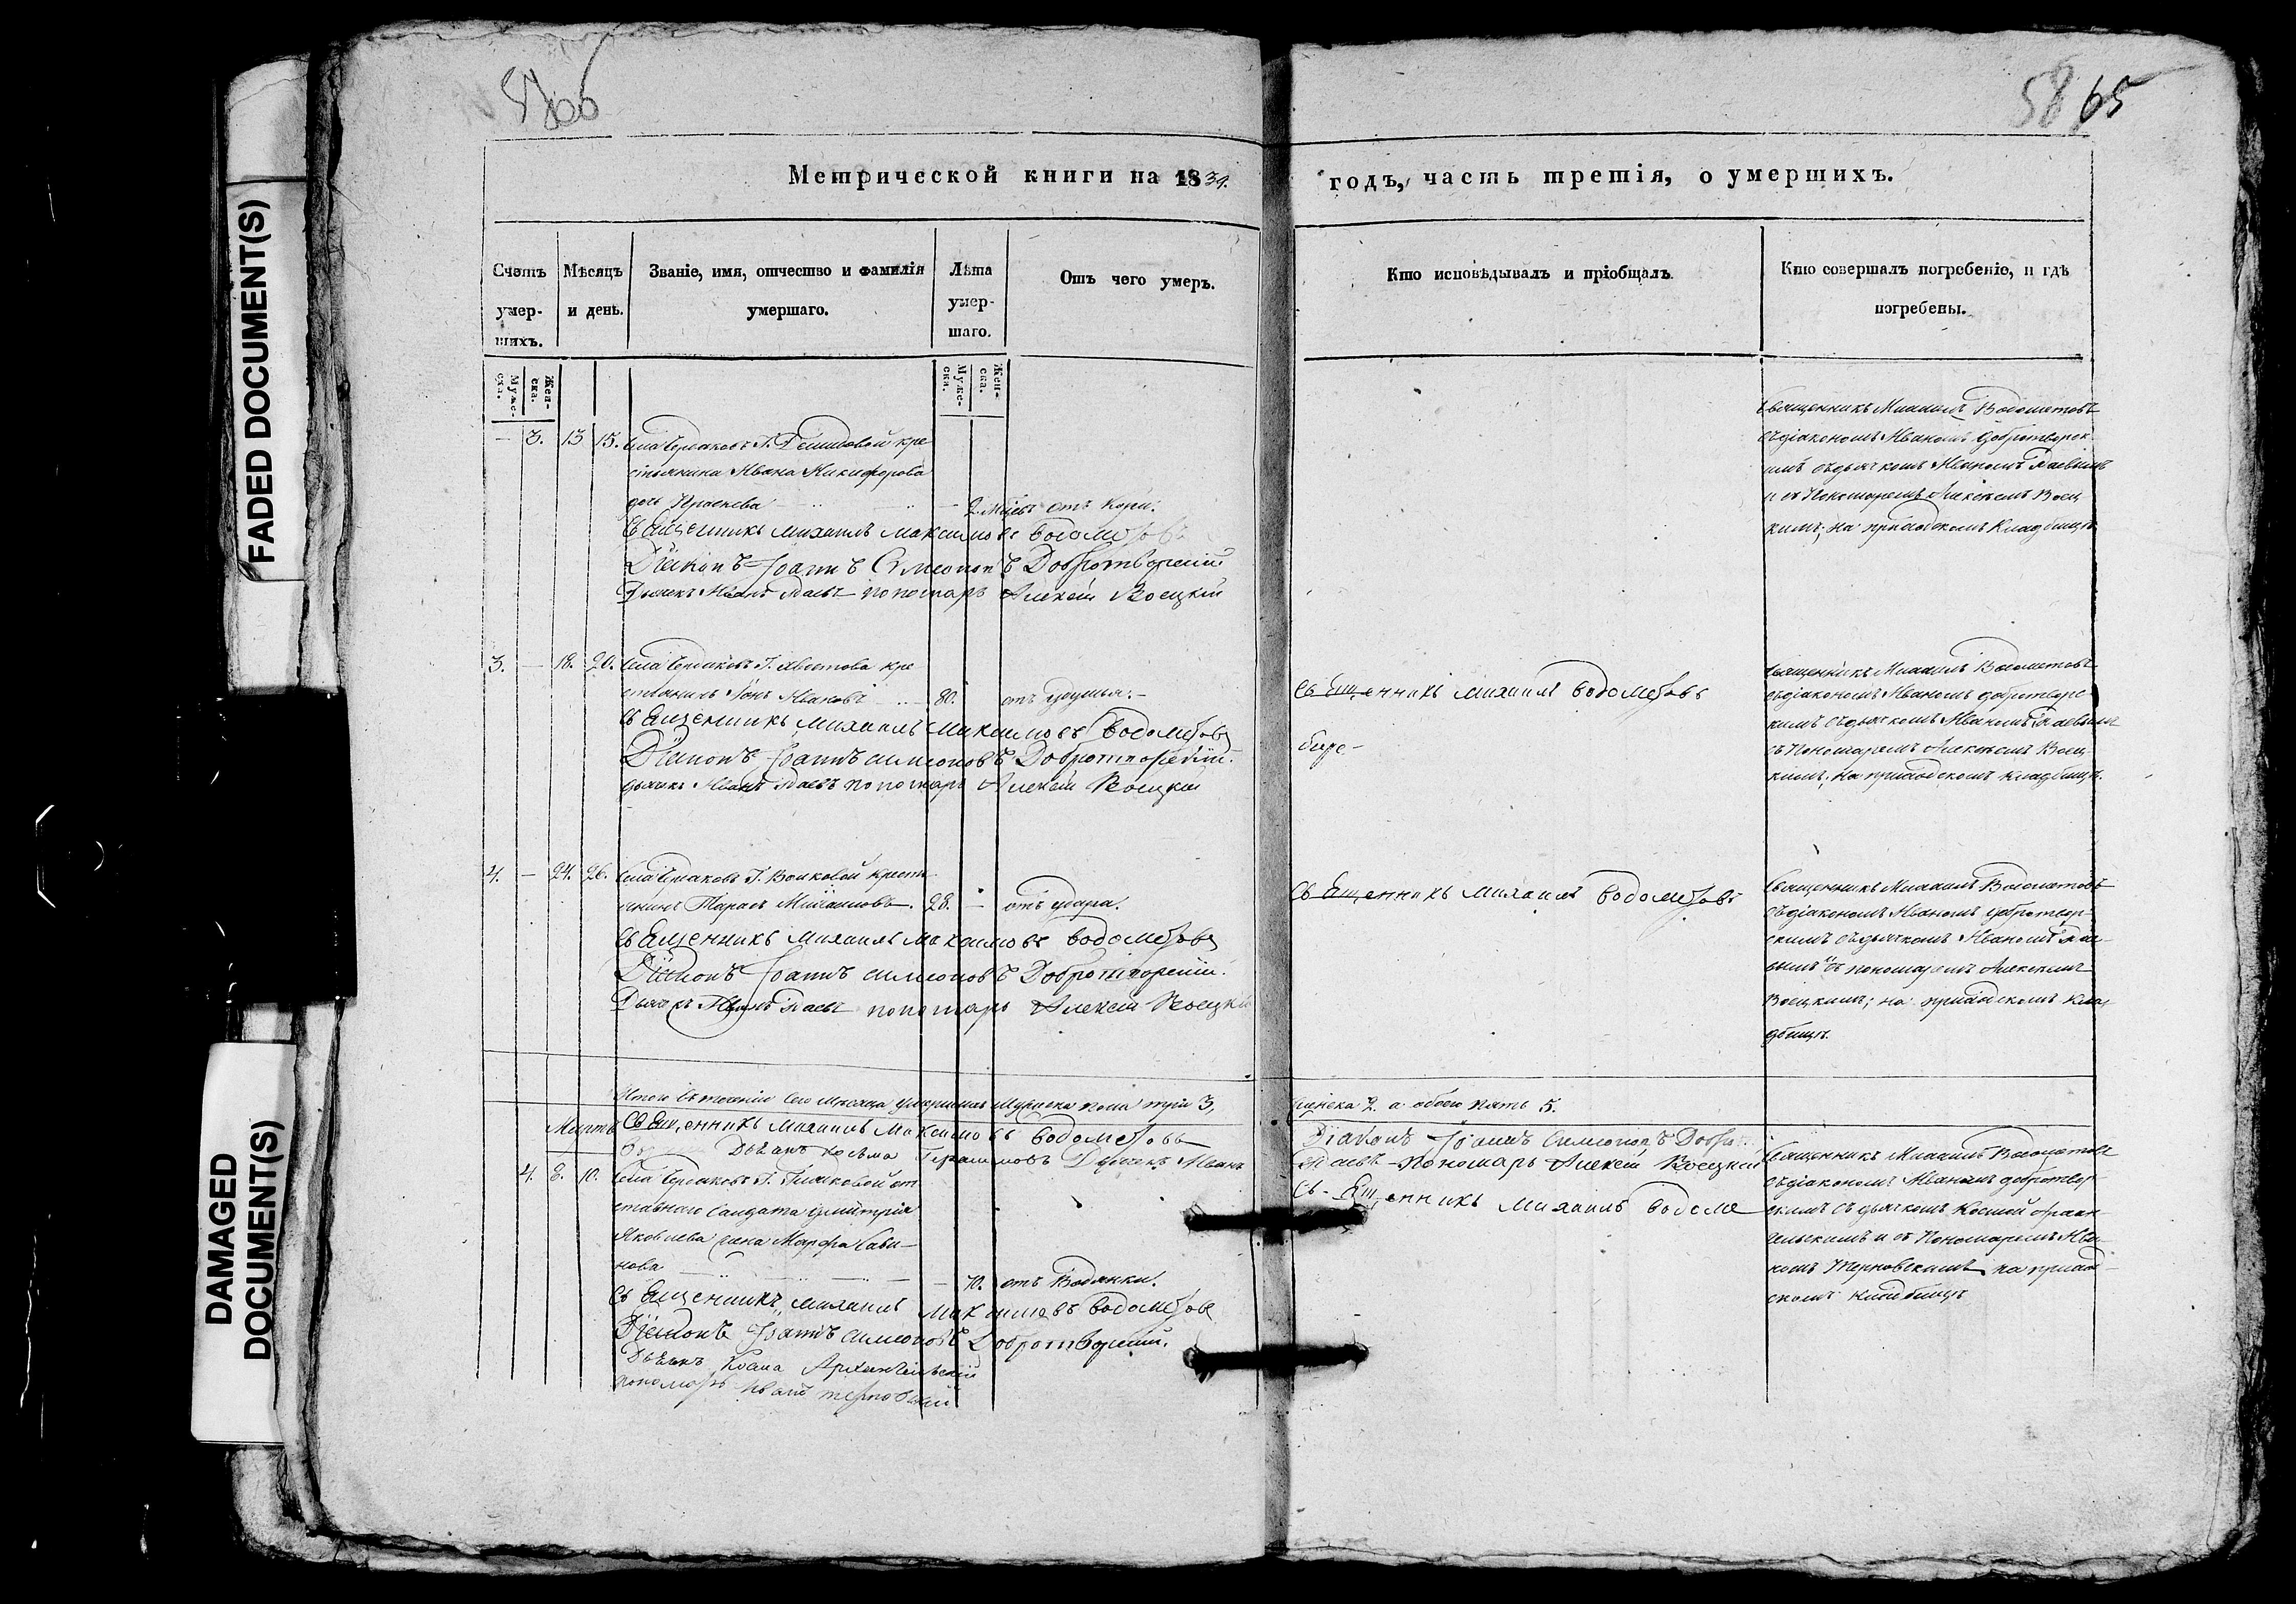 FADED DOCUMENT(S)
DAMAGED
DOCUMENT(S)
58 65
Метрической книги на 1834.
годъ, часть третія, о умершихъ.
Счетъ умер-шихъ.
Мѣсяцъ и день.
Званіе, имя, отчество и фамилія умершаго.
Лѣта умер-шаго.
Отъ чего умеръ.
Кто исповѣдывалъ и пріобщалъ.
Кто совершалъ погребеніе, и гдѣ погребены.
Муже-ска.
Жен-ска.
Муже-ска.
Жен-ска.
— 3. 13 15. Села Г. Демидовой кре
стьянина Ивана Никифорова
дочь — 2. отъ Кори.
Священникъ Михаилъ Максимовъ Водометовъ
Діаконъ Іоаннъ Симеоновъ Добротворскій
Дьячекъ Иванъ пономарь Алексій Воецкій
Священникъ Михаилъ Водометовъ
съдіакономъ Иваномъ Добротворск
имъ съдьячкомъ Иваномъ
и съ Пономаремъ Алексѣемъ Воец
кимъ; на приходскомъ Кладбищѣ
3. — 18. 20. Села Г. кре
стьянинъ Иванъ — 80. отъ удушья.
Священникъ Михаилъ Максимовъ Водометовъ
Діаконъ Іоаннъ Симеоновъ Добротворскій.
дьячекъ Иванъ пономарь Алексій Воецкій
Священникъ Михаилъ Водометовъ
Священникъ Михаилъ Водометовъ
съдіакономъ Иваномъ добротворс
кимъ съдьячкомъ Иваномъ
съ Пономаремъ Алексѣемъ Воец-
кимъ; на приходскомъ кладбищѣ.
4. — 24. 26. Села Г. Волковой кресть
янинъ Тарасъ Михайловъ. 28. — отъ удара.
Священникъ Михаилъ Максимовъ Водометовъ
Діаконъ Іоаннъ Симеоновъ Добротворскій.
Дьячекъ Иванъ пономарь Алексій Воецкій
Священникъ Михаилъ Водометовъ
Священникъ Михаилъ Водометовъ
съдіакономъ Иваномъ добротвор-
скимъ съдьячкомъ Иваномъ
съ пономаремъ Алексѣемъ
Воецкимъ; на приходскомъ кла
дбищѣ.
Итого въ теченіи сего мѣсяца умершихъ мужеска пола три 3,
женска 2. а обоего пять 5.
Мартъ
Священникъ Михаилъ Максимовъ Водометовъ
Діаконъ Іоаннъ Симеоновъ
Косьма Герасимовъ Дьячекъ Иванъ
Пономарь Алексій Воецкій
4. 8. 10. Села Г. от
ставного Салдата Димитрія
Яковлева жена Марфа Сави-
нова — 70. отъ Водянки.
Священникъ Михаилъ Максимовъ Водометовъ
Діаконъ Іоаннъ Симеоновъ Добротворскій.
Косма Архангельскій
пономарь Иванъ Терновскій
Священникъ Михаилъ Водоме
Священникъ Михаилъ Водометовъ
съдіакономъ Иваномъ добротвор
скимъ съ дьячкомъ Космой Архан
гельскимъ и съ Пономаремъ Ива-
номъ Терновскимъ на приход
скомъ кладбищѣ